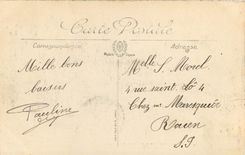 Carte Postale
Correspondance
Adresse
Mille bons
baisers
Pauline
Melle S. Morel
4 rue saint Lô 4
Chez me
Rouen
S. I